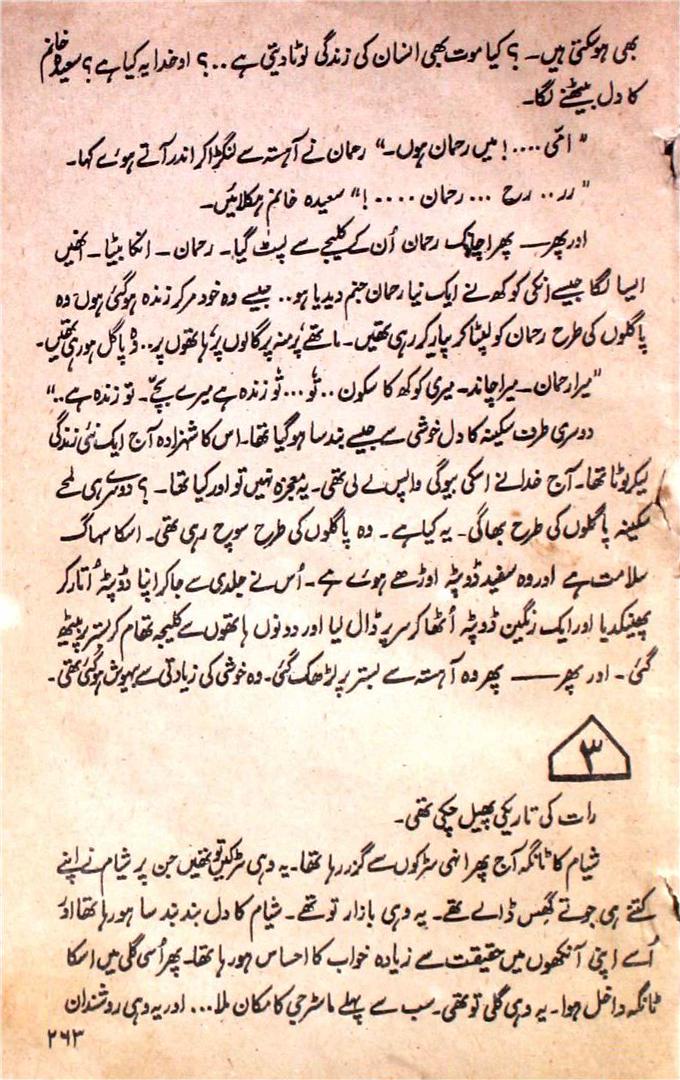 بھی ہوسکتی ہیں۔ ؟ کیا موت بھی انسان کی زندگی لوٹا دیتی ہے ..؟ او خدا یہ کیا ہے ؟ سعیدہ خانم
کا دل بیٹھنے لگا۔
" امّی ....! میں رحمان ہوں۔" رحمان نے آہستہ سے لنگڑا کر اندر آتے ہوئے کہا۔
" رر .. رح ... رحمان ....!" سعیدہ خانم ہکلائیں۔
اور پھر —— پھر اچانک رحمان اُن کے کلیجے سے لپٹ گیا۔ رحمان۔ انکا بیٹا۔ انھیں
ایسا لگا جیسے انکی کوکھ نے ایک نیا رحمان جنم دیدیا ہو .. جیسے وہ خود مر کر زندہ ہو گئی ہوں وہ
پاگلوں کی طرح رحمان کو لپٹا کر پیار کر رہی تھیں۔ ماتھے پر منہ پر گالوں پر ہاتھوں پر .. وہ پاگل ہو رہی تھیں۔
" میرا رحمان۔ میرا چاند۔ میری کوکھ کا سکون .. تُو ... تُو زندہ ہے میرے بچّے۔ تو زندہ ہے .."
دوسری طرف سکینہ کا دل خوشی سے جیسے بند سا ہو گیا تھا۔ اس کا شہزادہ آج ایک نئی زندگی
لیکر لوٹا تھا۔ آج خدا نے اسکی بیوگی واپس لے لی تھی۔ یہ معجزہ نہیں تو اور کیا تھا۔ ؟ دوسرے ہی لمحے
سکینہ پاگلوں کی طرح بھاگی۔ یہ کیا ہے۔ وہ پاگلوں کی طرح سوچ رہی تھی۔ اسکا سہاگ
سلامت ہے اور وہ سفید ڈوپٹہ اوڑھے ہوئے ہے۔ اُس نے جلدی سے جا کر اپنا ڈوپٹہ اُتار کر
پھینکدیا اور ایک رنگین ڈوپٹہ اُٹھا کر سر پر ڈال لیا اور دونوں ہاتھوں سے کلیجہ تھام کر بستر پر بیٹھ
گئی۔ اور پھر —— پھر وہ آہستہ سے بستر پر لڑھک گئی۔ وہ خوشی کی زیادتی سے بیہوش ہو گئی تھی۔
۳
رات کی تاریکی پھیل چکی تھی۔
شیام کا ٹانگہ آج پھر انہی سڑکوں سے گزر رہا تھا۔ یہ وہی سڑکیں تو تھیں جن پر شیام نے اپنے
کتنے ہی جوتے گھِس ڈالے تھے۔ یہ وہی بازار تو تھے۔ شیام کا دل بند بند سا ہو رہا تھا اور
اُسے اپنی آنکھوں میں حقیقت سے زیادہ خواب کا احساس ہو رہا تھا۔ پھر اُسی گلی میں اسکا
ٹانگہ داخل ہوا۔ یہ وہی گلی تو تھی۔ سب سے پہلے ماسٹر جی کا مکان ملا ... اور یہ وہی روشندان
۲۶۳